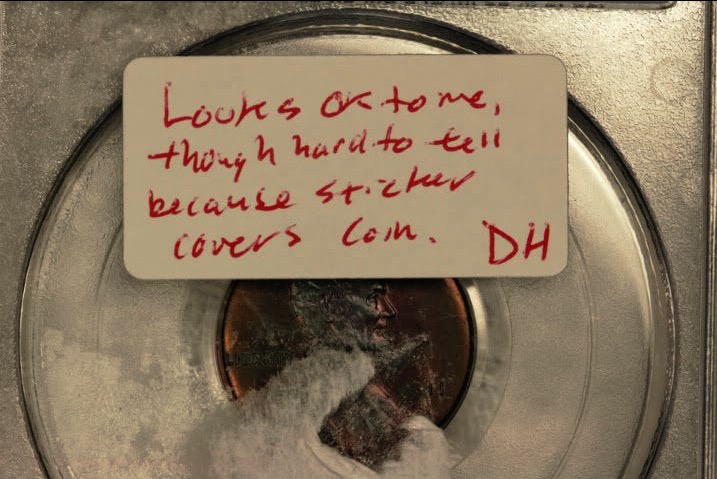 Looks OK to me,
though hard to tell
because sticker
covers Coin. DH
LIBERTY